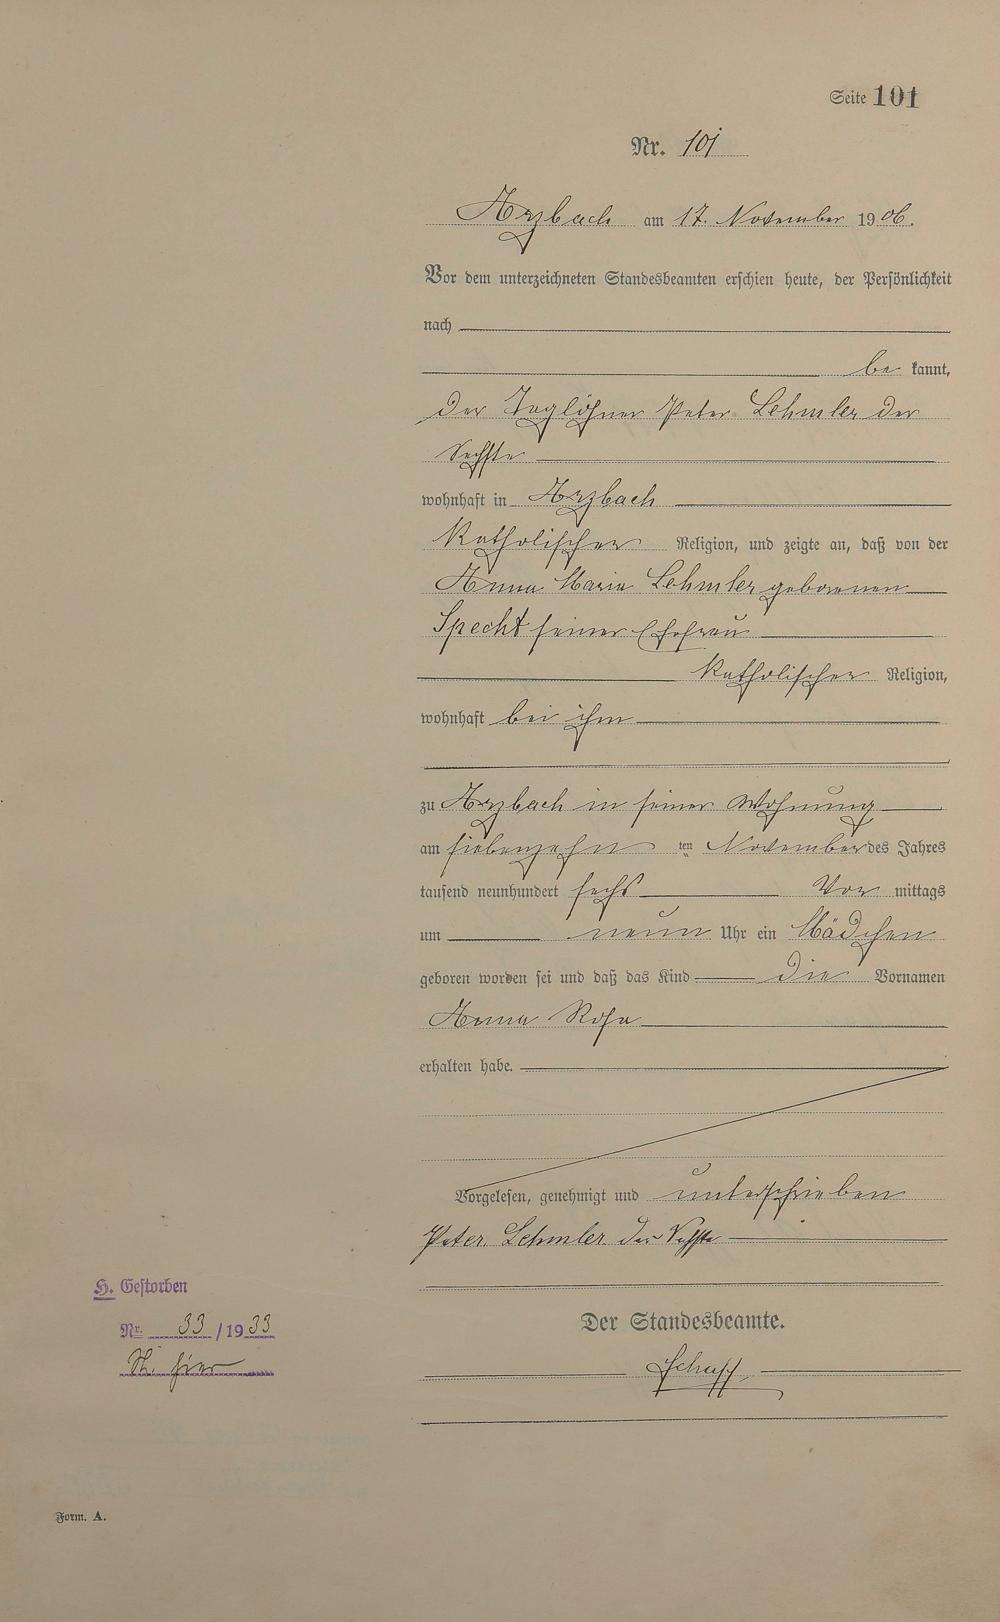 Seite 101
Nr. 101
Arzbach am 17. November 1906.
Vor dem unterzeichneten Standesbeamten erschien heute, der Persönlichkeit
nach
be kannt,
der Taglöhner Peter Lehmler der
Sechste
wohnhaft in Arzbach
katholischer Religion, und zeigte an, daß von der
Anna Maria Lehmler geborenen
Specht seiner Ehefrau
katholischer Religion,
wohnhaft bei ihm
zu Arzbach in seiner Wohnung
am siebenzehn ten November des Jahres
tausend neunhundert sechs Vor mittags
um neun Uhr ein Mädchen
geboren worden sei und daß das Kind die Vornamen
Anna Rosa
erhalten habe.
Vorgelesen, genehmigt und unterschrieben
Peter Lehmler der Sechste
H. Gestorben
Nr. 33/1933
St. hier
Der Standesbeamte.
Form. A.